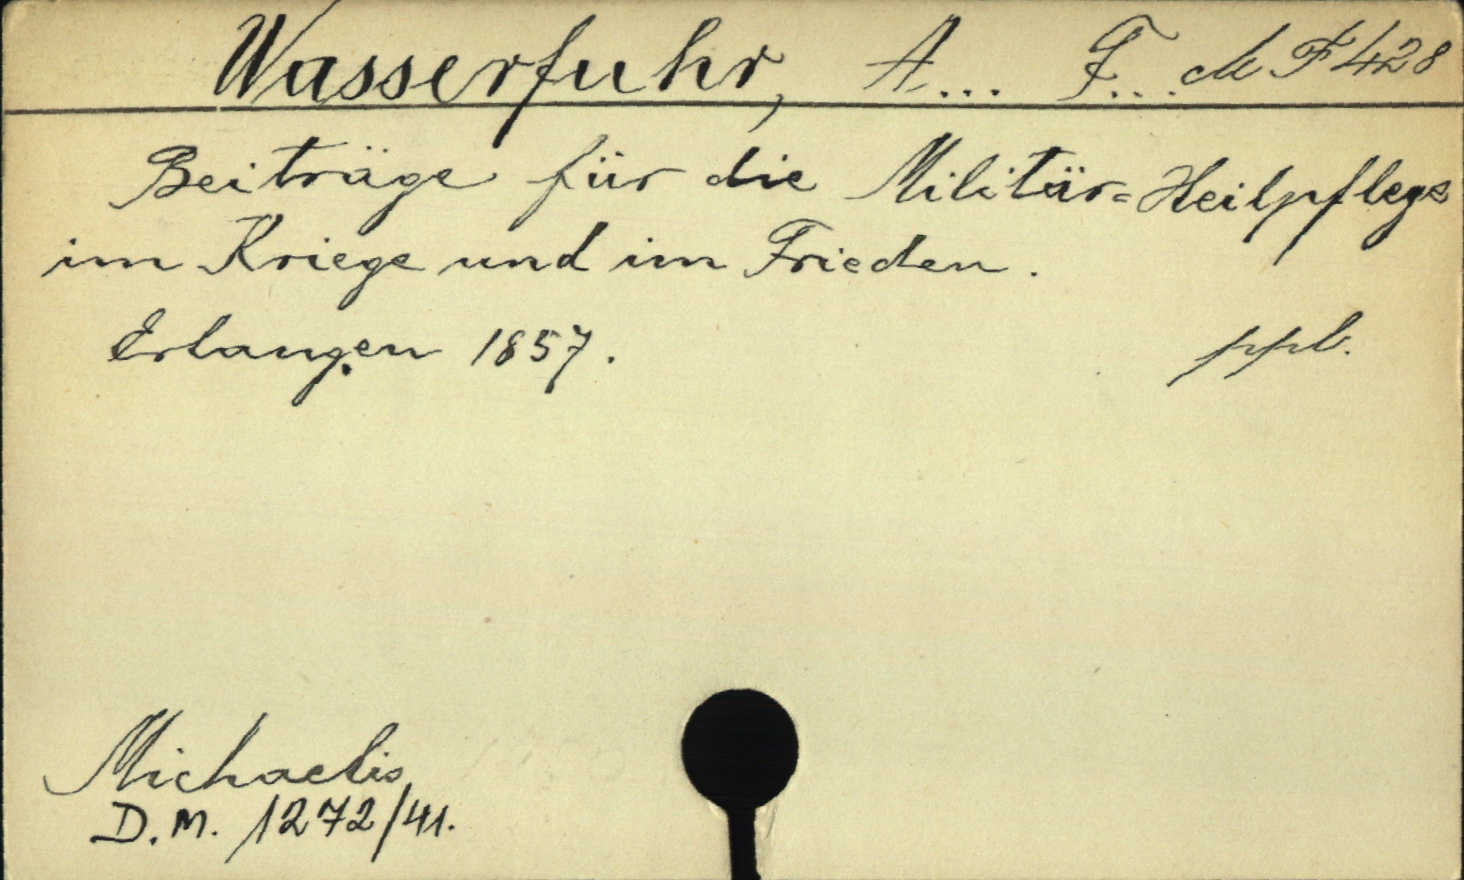 Wasserfuhr, A... F... M F 428
Beiträge für die Militär=Heilpflege
im Kriege und im Frieden.
Erlangen 1857. ppb.
Michaelis
D.M. 1272/41.